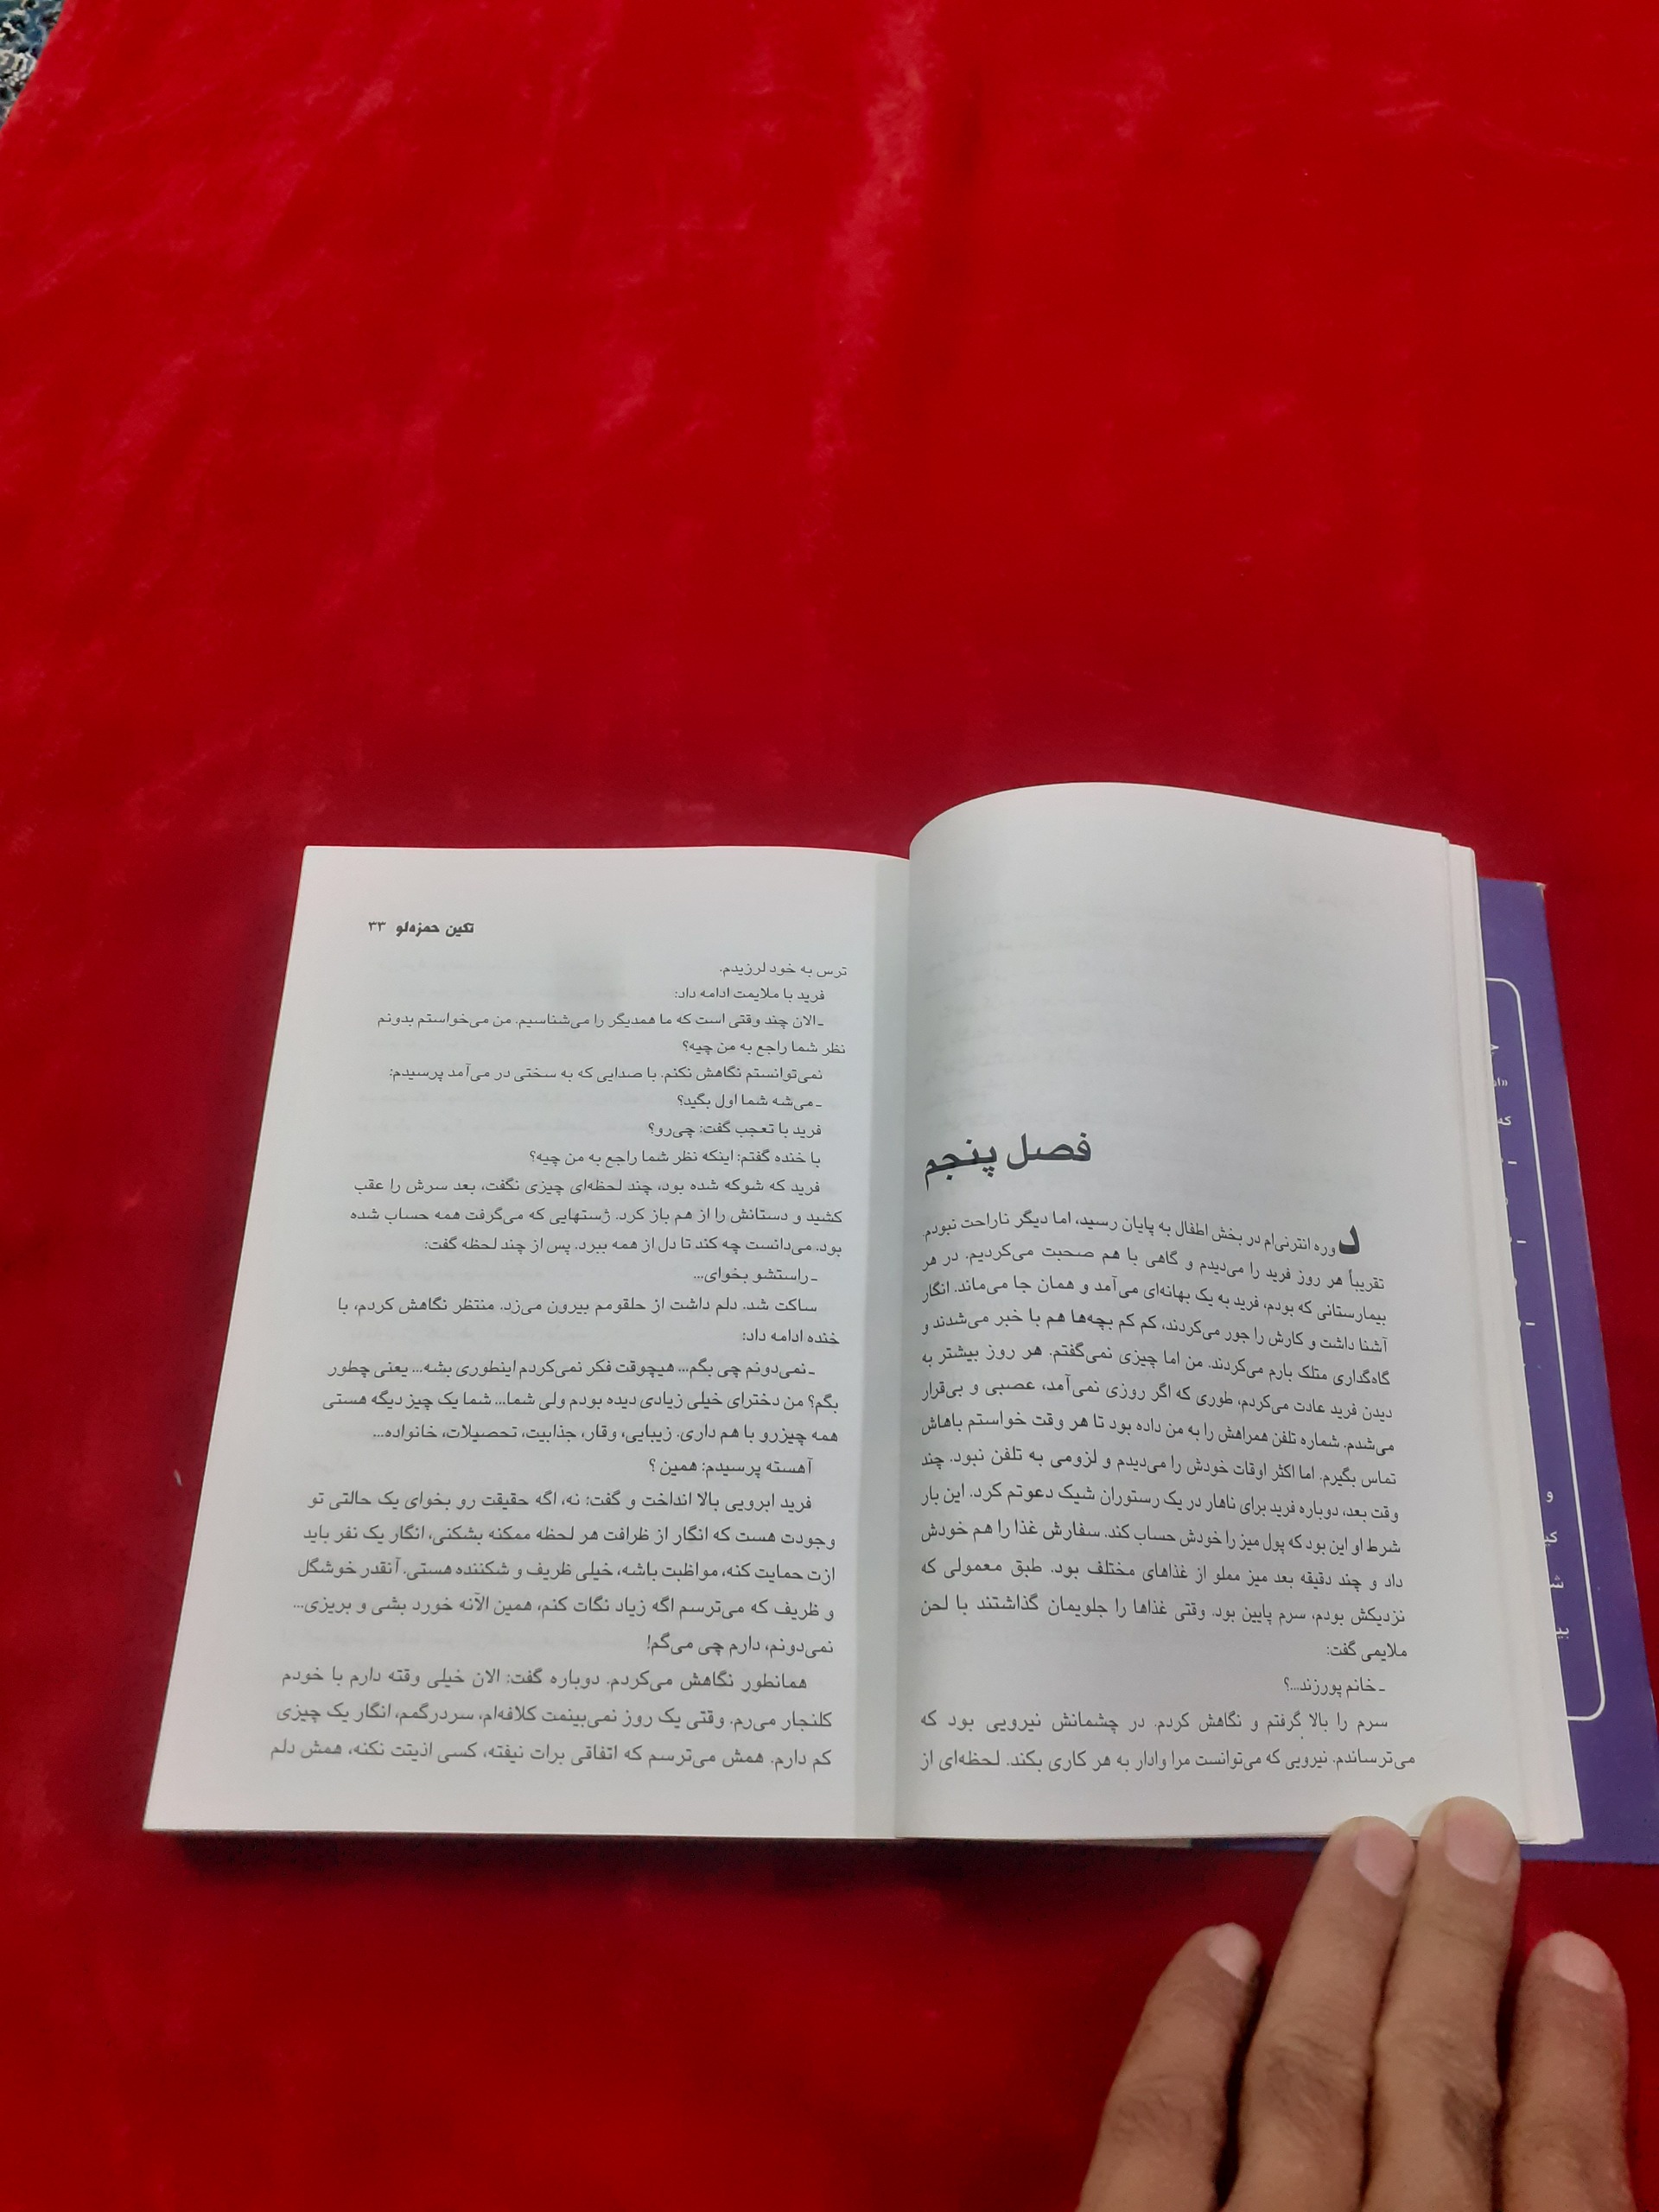 فصل پنجم
دوره انترنی‌ام در بخش اطفال به پایان رسید، اما دیگر ناراحت نبودم.
تقریباً هر روز فرید را می‌دیدم و گاهی با هم صحبت می‌کردیم. در هر
بیمارستانی که بودم، فرید به یک بهانه‌ای می‌آمد و همان جا می‌ماند. انگار
آشنا داشت و کارش را جور می‌کردند، کم کم بچه‌ها هم با خبر می‌شدند و
گاه‌گداری متلک بارم می‌کردند. من اما چیزی نمی‌گفتم. هر روز بیشتر به
دیدن فرید عادت می‌کردم، طوری که اگر روزی نمی‌آمد، عصبی و بی‌قرار
می‌شدم. شماره تلفن همراهش را به من داده بود تا هر وقت خواستم باهاش
تماس بگیرم. اما اکثر اوقات خودش را می‌دیدم و لزومی به تلفن نبود. چند
وقت بعد، دوباره فرید برای ناهار در یک رستوران شیک دعوتم کرد. این بار
شرط او این بود که پول میز را خودش حساب کند. سفارش غذا را هم خودش
داد و چند دقیقه بعد میز مملو از غذاهای مختلف بود. طبق معمولی که
نزدیکش بودم، سرم پایین بود. وقتی غذاها را جلویمان گذاشتند با لحن
ملایمی گفت:
ـ خانم پورزند...؟
سرم را بالا گرفتم و نگاهش کردم. در چشمانش نیرویی بود که
می‌ترساندم. نیرویی که می‌توانست مرا وادار به هر کاری بکند. لحظه‌ای از
تکین حمزه‌لو ۳۳
ترس به خود لرزیدم.
فرید با ملایمت ادامه داد:
ـ الان چند وقتی است که ما همدیگر را می‌شناسیم. من می‌خواستم بدونم
نظر شما راجع به من چیه؟
نمی‌توانستم نگاهش نکنم. با صدایی که به سختی در می‌آمد پرسیدم:
ـ می‌شه شما اول بگید؟
فرید با تعجب گفت: چی‌رو؟
با خنده گفتم: اینکه نظر شما راجع به من چیه؟
فرید که شوکه شده بود، چند لحظه‌ای چیزی نگفت، بعد سرش را عقب
کشید و دستانش را از هم باز کرد. ژستهایی که می‌گرفت همه حساب شده
بود. می‌دانست چه کند تا دل از همه ببرد. پس از چند لحظه گفت:
ـ راستشو بخوای...
ساکت شد. دلم داشت از حلقومم بیرون می‌زد. منتظر نگاهش کردم، با
خنده ادامه داد:
ـ نمی‌دونم چی بگم... هیچوقت فکر نمی‌کردم اینطوری بشه... یعنی چطور
بگم؟ من دخترای خیلی زیادی دیده بودم ولی شما... شما یک چیز دیگه هستی
همه چیزرو با هم داری. زیبایی، وقار، جذابیت، تحصیلات، خانواده...
آهسته پرسیدم: همین ؟
فرید ابرویی بالا انداخت و گفت: نه، اگه حقیقت رو بخوای یک حالتی تو
وجودت هست که انگار از ظرافت هر لحظه ممکنه بشکنی، انگار یک نفر باید
ازت حمایت کنه، مواظبت باشه، خیلی ظریف و شکننده هستی. آنقدر خوشگل
و ظریف که می‌ترسم اگه زیاد نگات کنم، همین الآنه خورد بشی و بریزی...
نمی‌دونم، دارم چی می‌گم!
همانطور نگاهش می‌کردم. دوباره گفت: الان خیلی وقته دارم با خودم
کلنجار می‌رم. وقتی یک روز نمی‌بینمت کلافه‌ام، سردرگمم، انگار یک چیزی
کم دارم. همش می‌ترسم که اتفاقی برات نیفته، کسی اذیتت نکنه، همش دلم